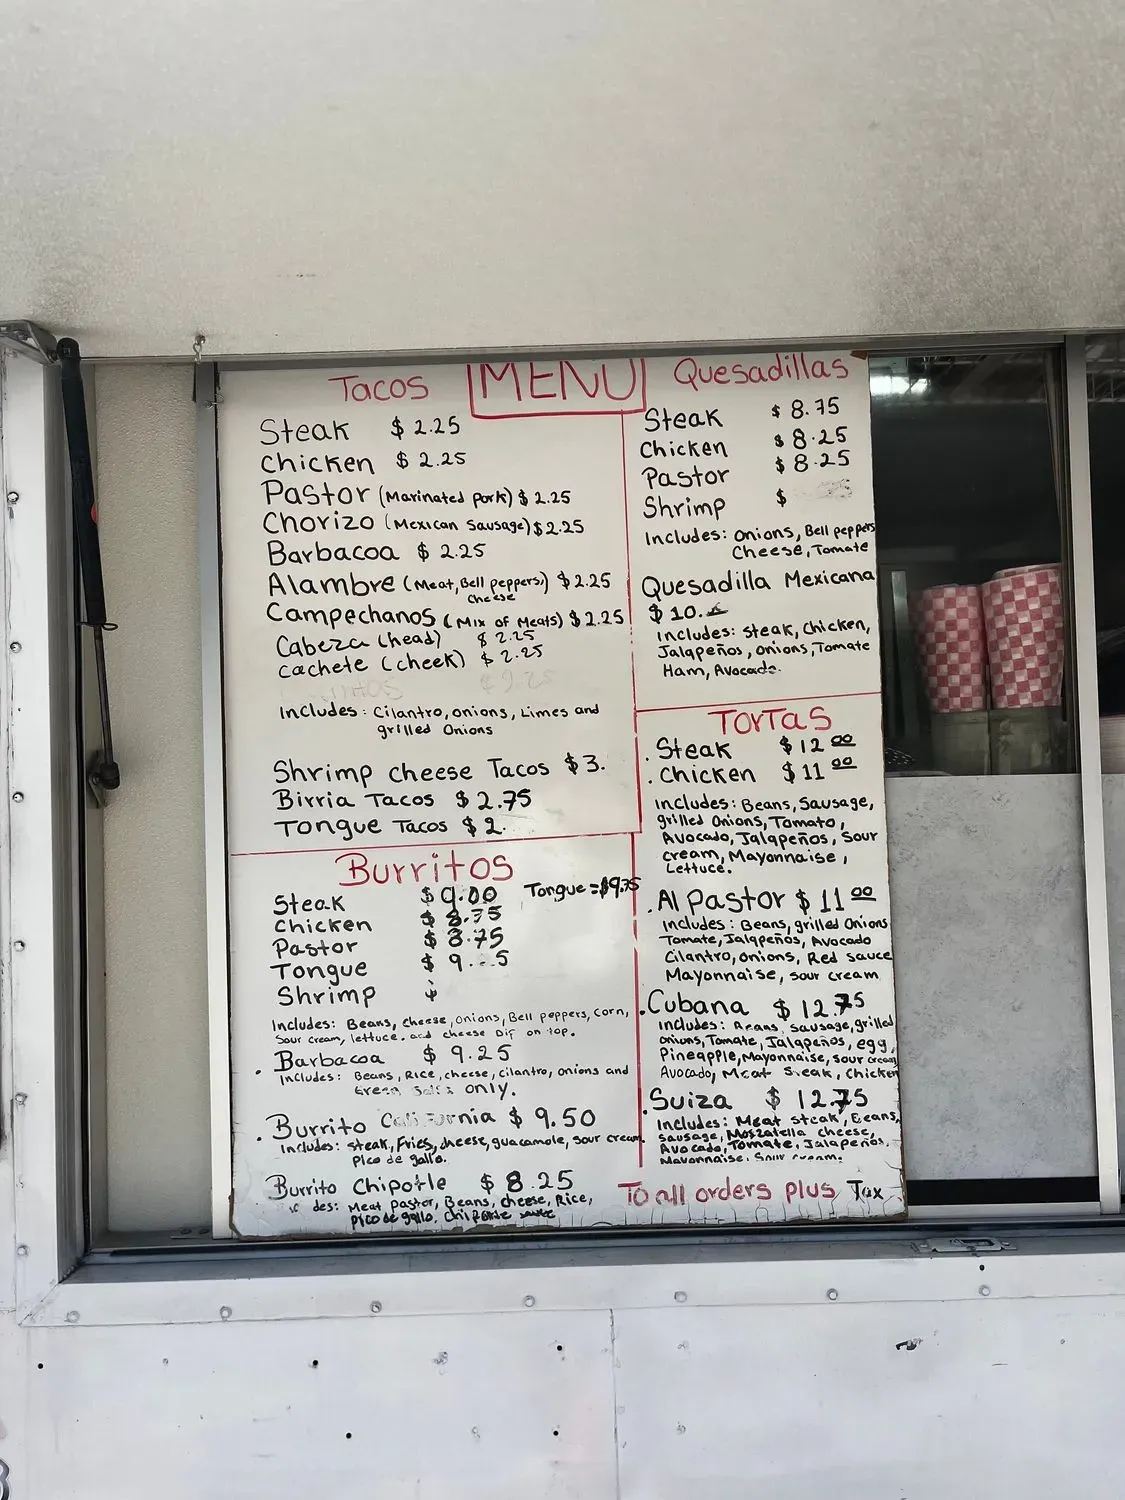 MENU
Tacos
Steak $2.25
Chicken $2.25
Pastor (Marinated pork) $2.25
Chorizo (Mexican Sausage) $2.25
Barbacoa $2.25
Alambre (Meat, Bell peppers,) $2.25
cheese
Campechanos (Mix of Meats) $2.25
Cabeza (head) $2.25
cachete (cheek) $2.25
Includes: Cilantro, onions, Limes and
grilled Onions
Shrimp cheese Tacos $3.
Birria Tacos $2.75
Tongue Tacos $2.
Burritos
Steak $9.00 Tongue = $9.75
Chicken $8.75
Pastor $8.75
Tongue $9. 5
Shrimp
Includes: Beans, cheese, Onions, Bell peppers, corn,
Sour cream, lettuce. and cheese Dip on top.
. Barbacoa $9.25
Includes: Beans, Rice, cheese, cilantro, onions and
Green only.
. Burrito California $9.50
Includes: steak, Fries, cheese, guacamole, sour cream.
Pico de gallo.
Burrito Chipotle $8.25
des: Meat pastor, Beans, cheese, Rice,
pico de gallo, Chipotle sauce
Quesadillas
Steak $8.75
Chicken $8.25
Pastor $8.25
Shrimp $
Includes: Onions, Bell peppers
Cheese, Tomate
Quesadilla Mexicana
$10.
Includes: steak, Chicken,
Jalapeños, onions, Tomate
Ham, Avocado.
TORTAS
. Steak $12 00
. Chicken $11 00
Includes: Beans, Sausage,
grilled Onions, Tomato,
Avocado, Jalapeños, Sour
cream, Mayonnaise,
Lettuce.
. Al Pastor $11 00
Includes: Beans, grilled Onions
Tomate, Jalapeños, Avocado
Cilantro, Onions, Red sauce
Mayonnaise, sour cream
. Cubana $12.75
Includes: Beans, sausage, grilled
onions, Tomate, Jalapeños, egg,
Pineapple, Mayonnaise, sour cream
Avocado, Meat Steak, Chicken
. Suiza $12.75
Includes: Meat steak, Beans,
sausage, Mozzatella cheese,
Avocado, Tomate, Jalapeños,
Mayonnaise, Sour cream.
To all orders plus Tax